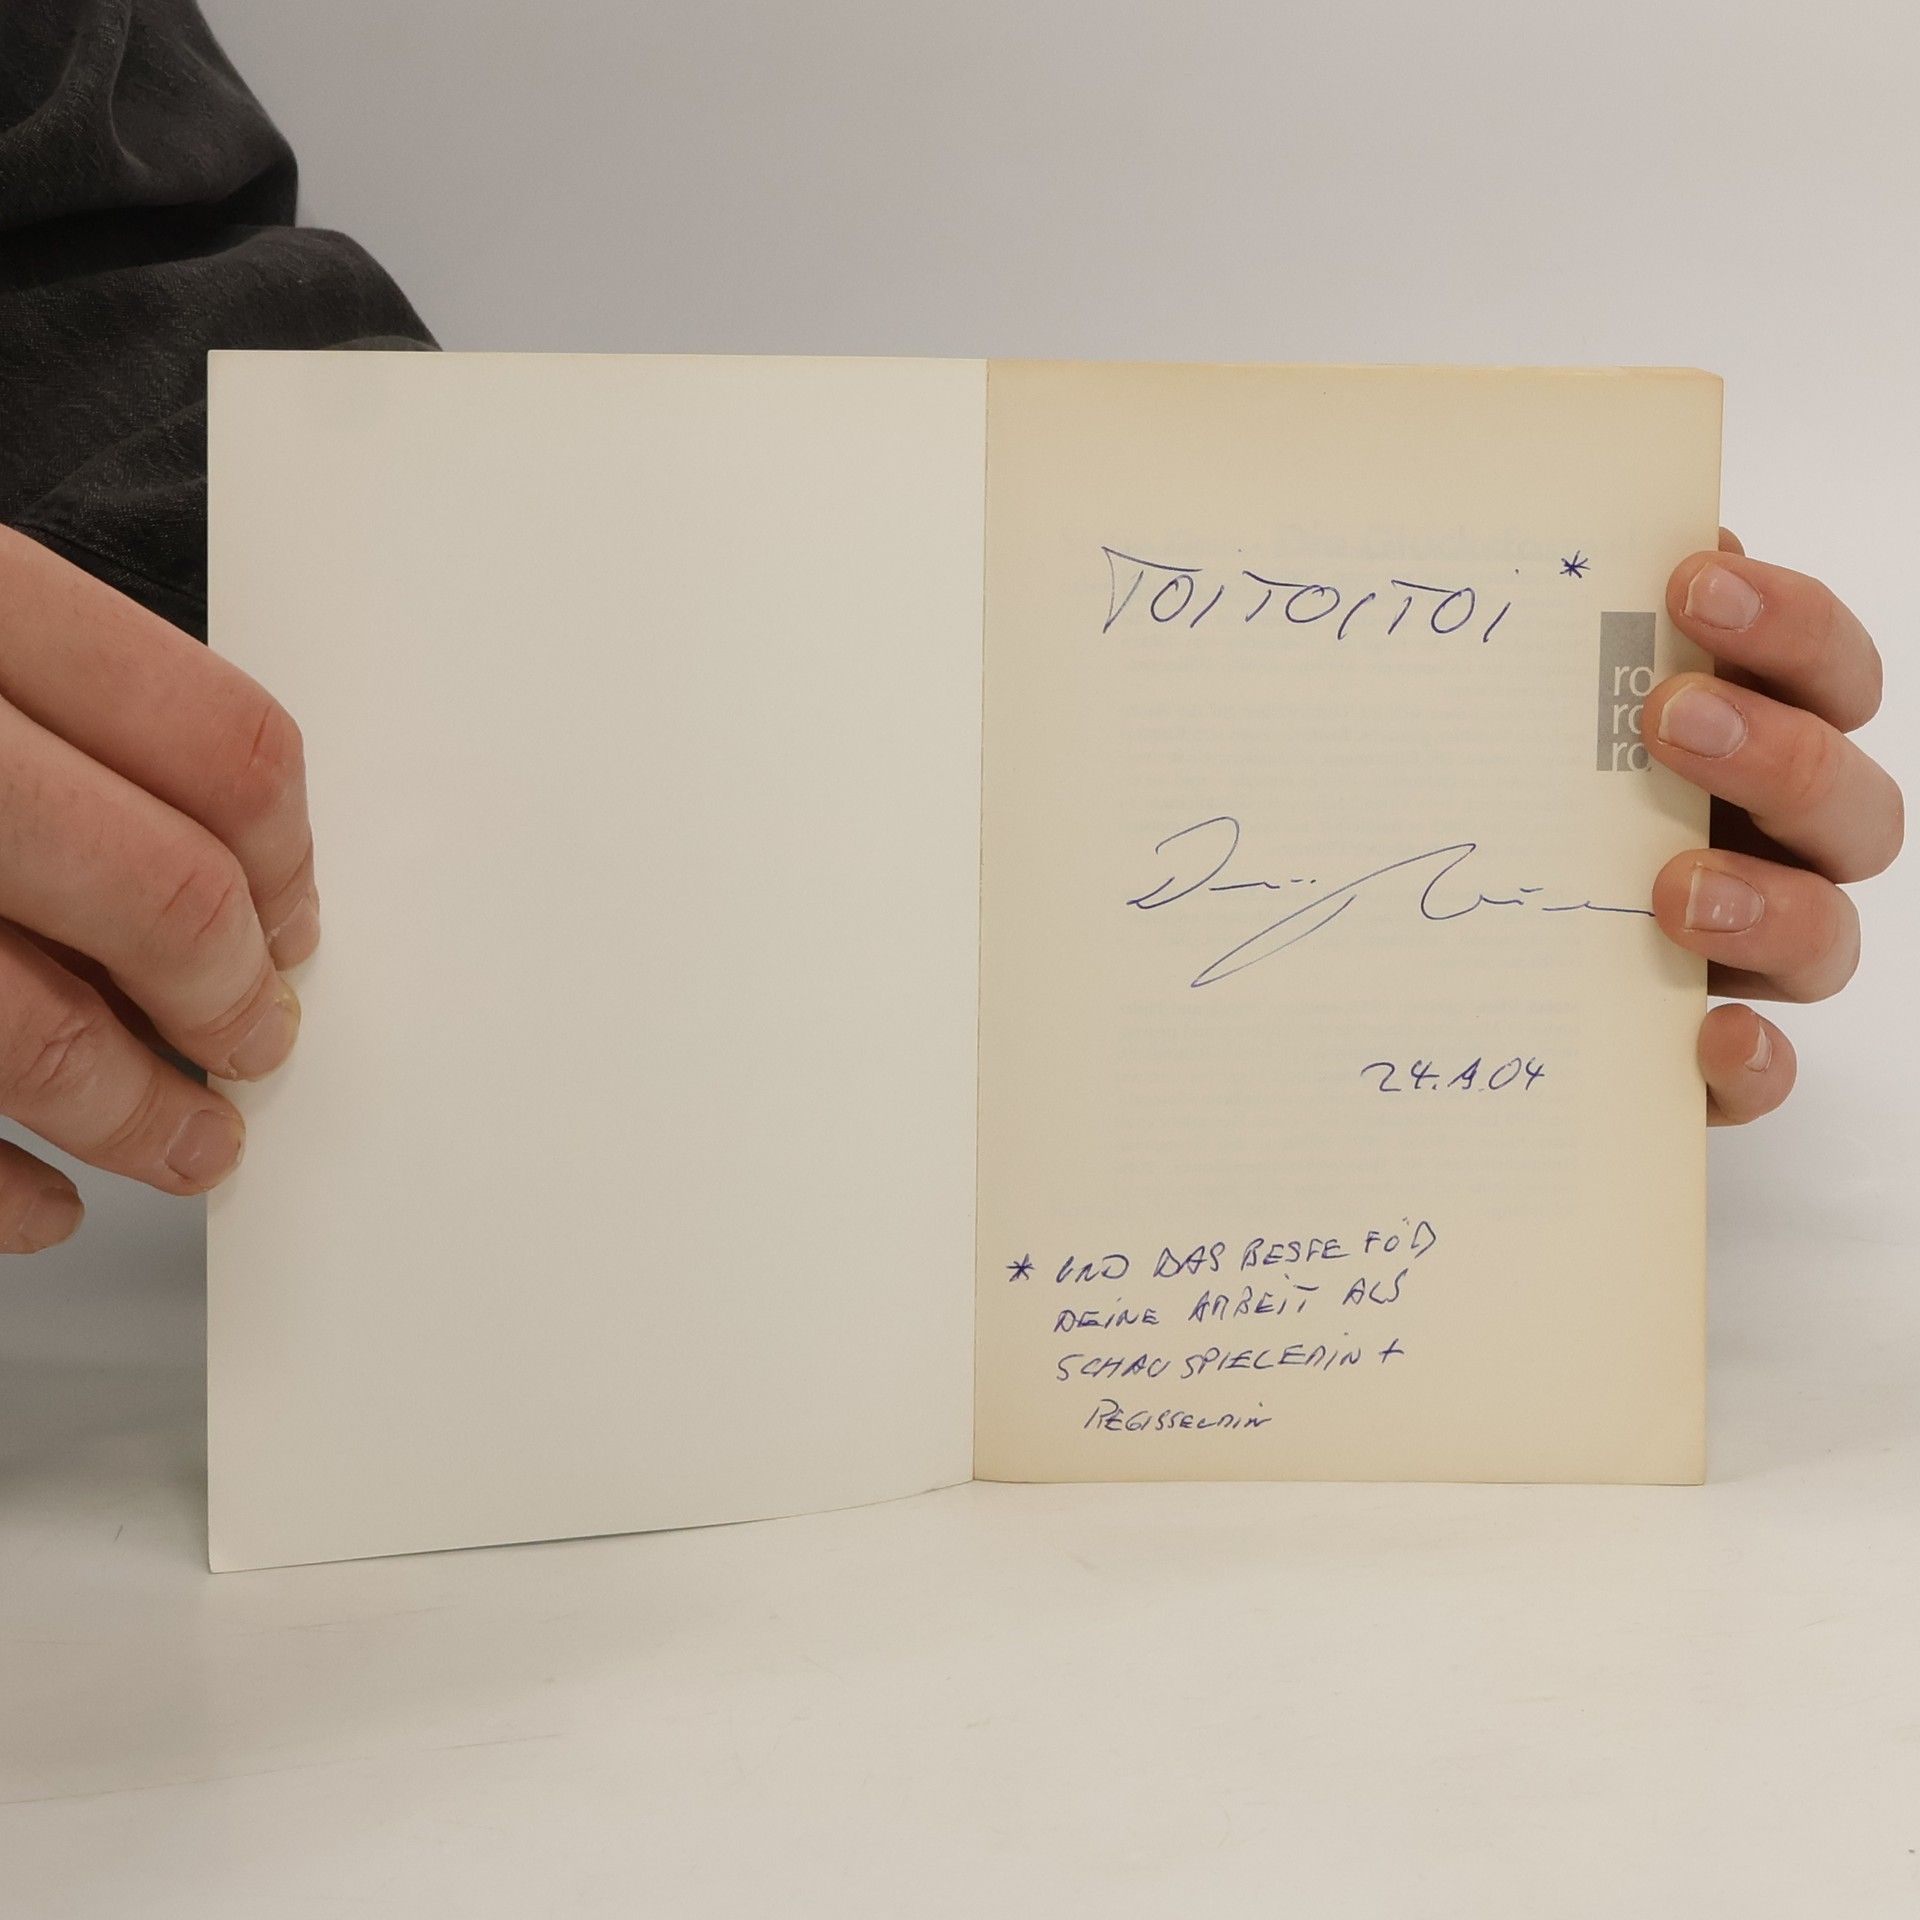 TOI TOI TOI *
ro
ro
ro
24.9.04
* UND DAS BESTE FÜR
DEINE ARBEIT ALS
SCHAUSPIELERIN +
REGISSEURIN